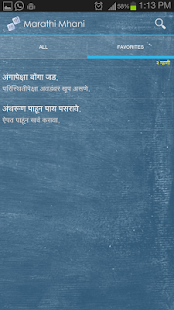 1:13 PM
Marathi Mhani
ALL
FAVORITES
2 म्हणी
अंगापेक्षा बोंगा जड.
परिस्थितीपेक्षा अवडंबर खूप असणे.
अंथरूण पाहून पाय पसरावे.
ऐपत पाहून खर्च करावा.